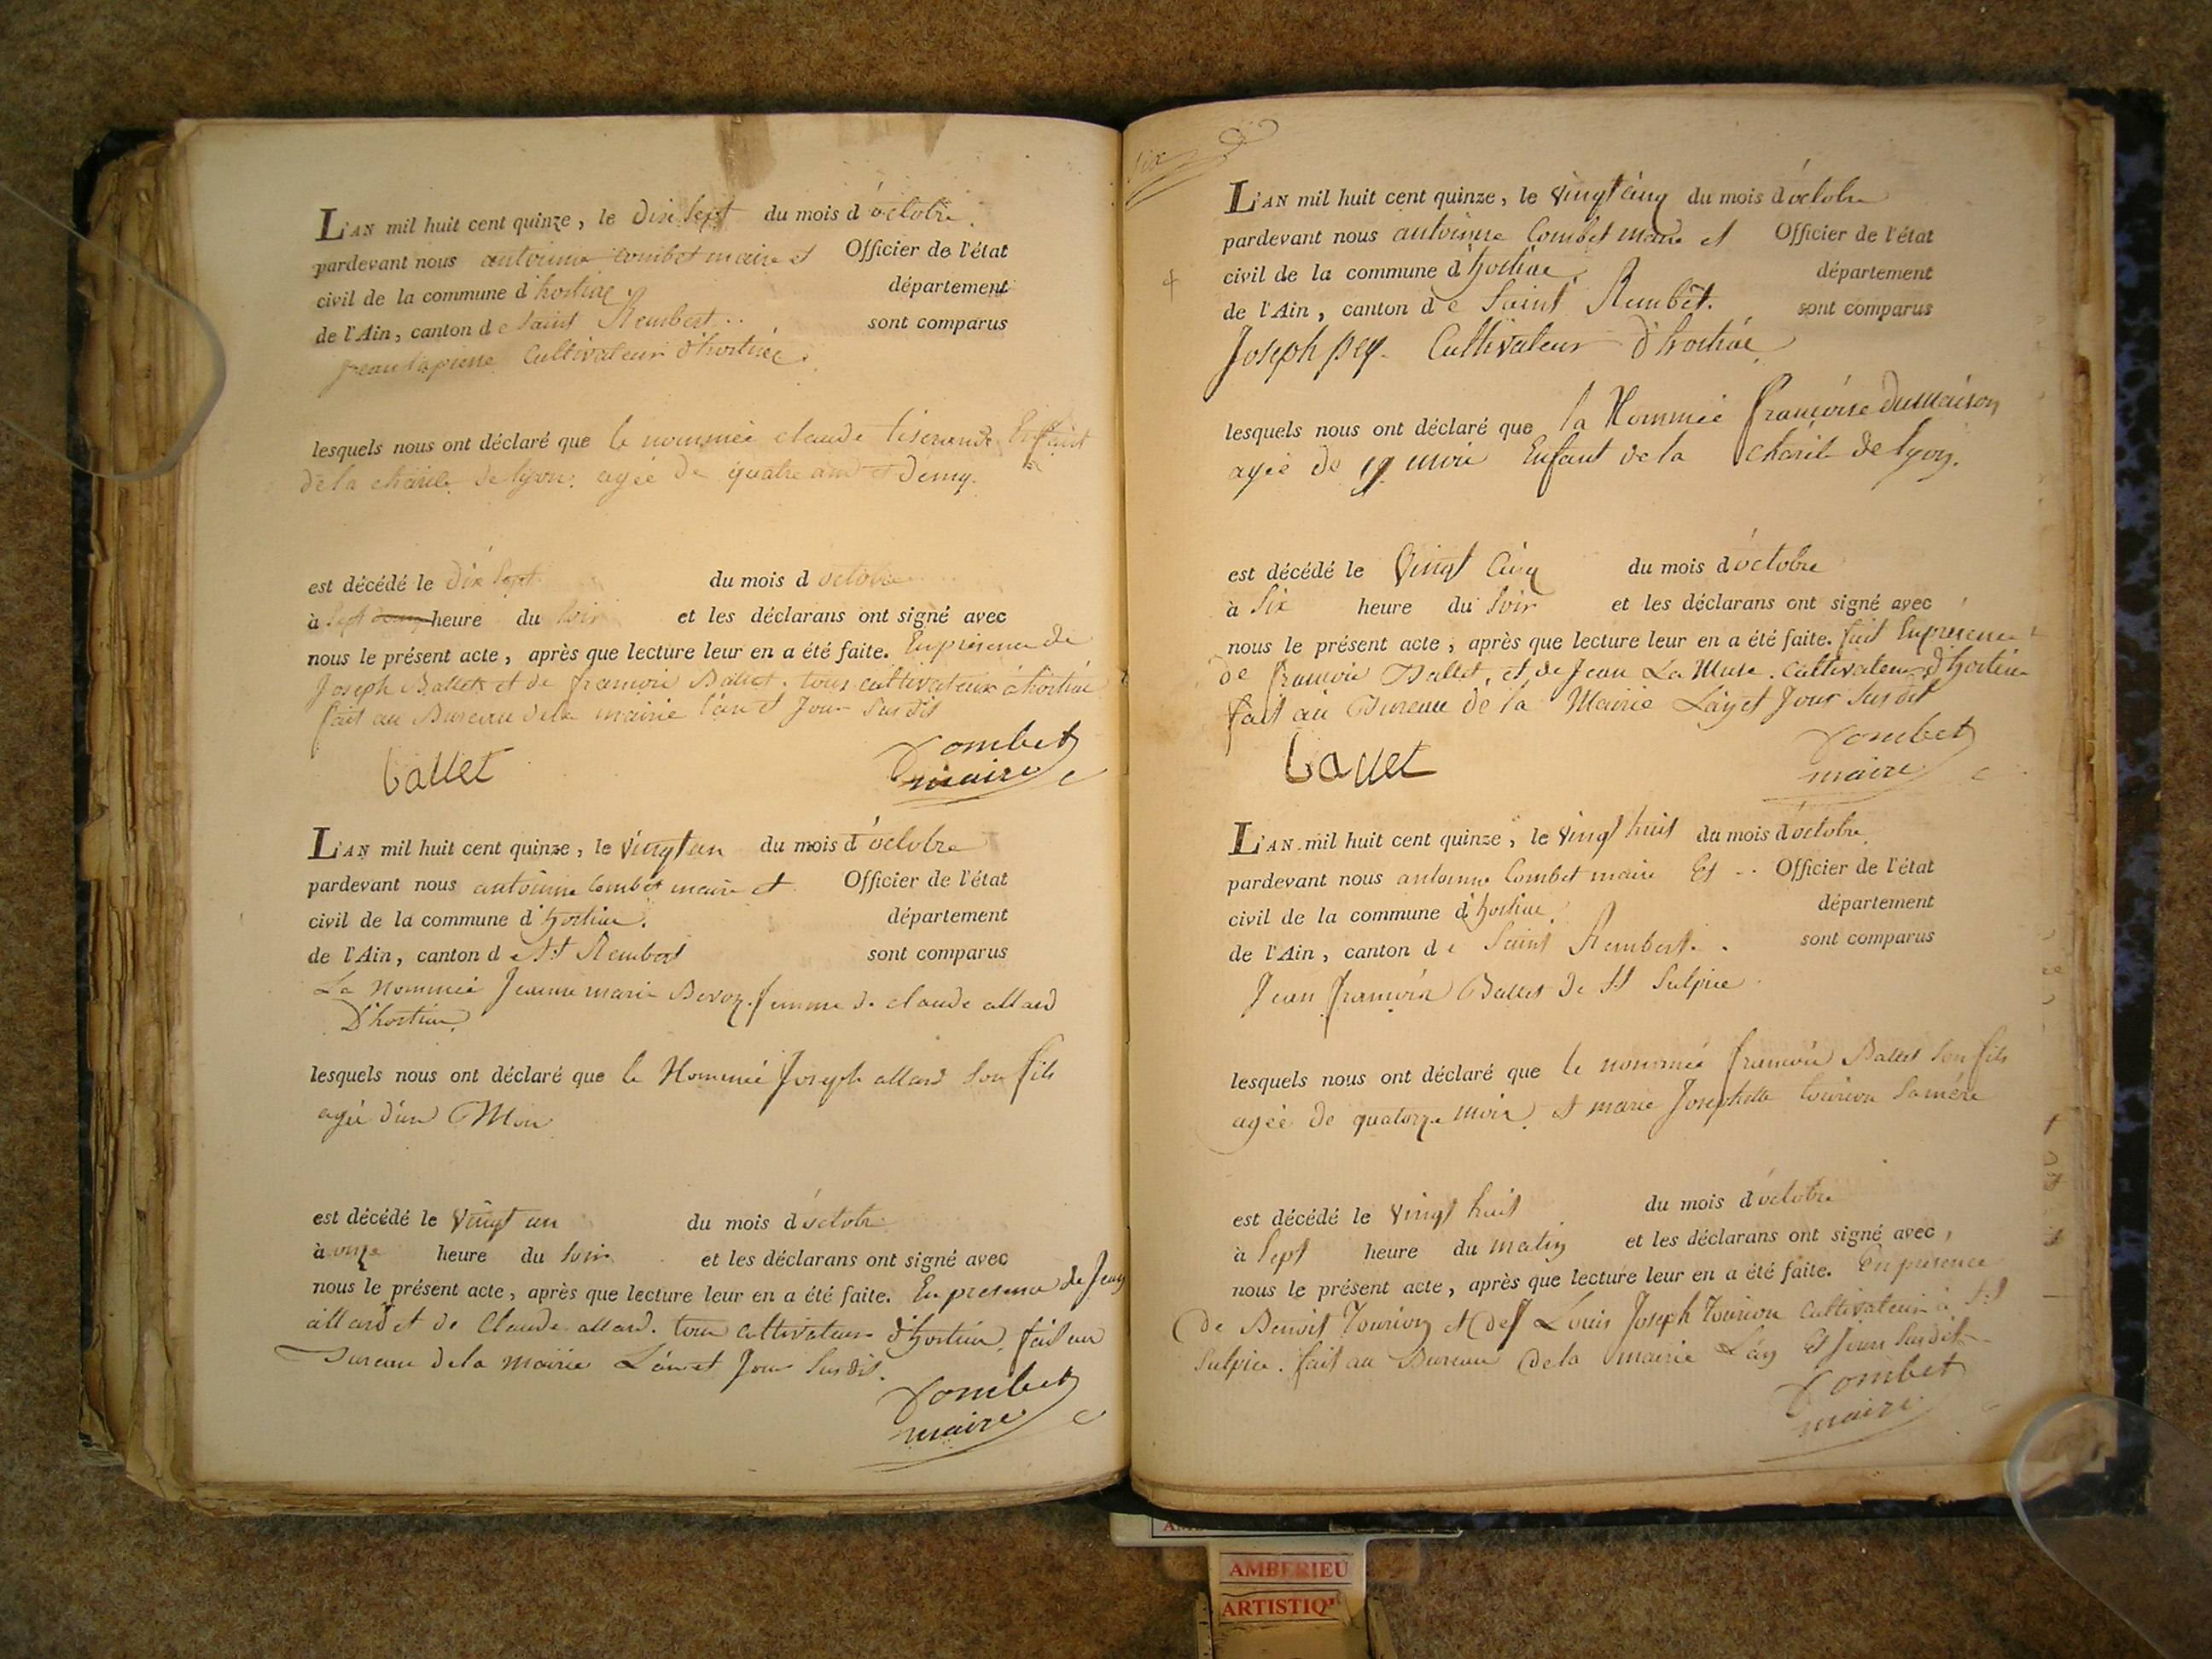 L'AN mil huit cent quinze, le dix sept du mois d'octobre
pardevant nous antoinne Combet maire et Officier de l'état
civil de la commune d'hostiae département
de l'Ain, canton de saint Rembert sont comparus
jean lapierre Cultivateur d'hostiae
lesquels nous ont déclaré que le nommée claude Enfant
de la charité de lyon. agée de quatre ans et demy.
est décédé le dix sept du mois d octobre
à sept heure du soir et les déclarans ont signé avec
nous le présent acte, après que lecture leur en a été faite. En présence de
Joseph Ballet et de francois Ballet. tous cultivateur d'hostiae
fait au Bureau de la mairie l'an et Jour susdit
Ballet Combet
maire
L'AN mil huit cent quinze, le vingt un du mois d'octobre
pardevant nous antoinne Combet maire et Officier de l'état
civil de la commune d'hostiae. département
de l'Ain, canton de St Rembert sont comparus
La Nommée Jeanne marie Bevoz femme de claude allard
D'hostiae
lesquels nous ont déclaré que le Nommée Joseph allard son fils
agée d'un Mois
est décédé le vingt un du mois d'octobre
à onze heure du soir et les déclarans ont signé avec
nous le présent acte, après que lecture leur en a été faite. En presence de Jean
allard et de Claude allard. tous cultivateur d'hostiae. fait au
Bureau de la mairie L'an et Jour susdit.
Combet
maire
six
L'AN mil huit cent quinze, le vingt cinq du mois d'octobre
pardevant nous antoinne Combet maire et Officier de l'état
civil de la commune d'hostiae. département
de l'Ain, canton de Saint Rembert. sont comparus
Joseph pey Cultivateur d'hostiae
lesquels nous ont déclaré que la Nommée francoise dumaison
agée de 19 mois Enfant de la charité de lyon.
est décédé le vingt cinq du mois d'octobre
à six heure du soir et les déclarans ont signé avec
nous le présent acte, après que lecture leur en a été faite. fait En présence
de francois Ballet, et de Jean La Muse. cultivateur d'hostiae
fait au Bureau de la Mairie L'an et Jour susdit
Ballet Combet
maire
L'AN mil huit cent quinze, le vingt huit du mois d'octobre
pardevant nous antoinne Combet maire Et Officier de l'état
civil de la commune d'hostiae département
de l'Ain, canton de Saint Rembert. sont comparus
Jean francois Ballet de St Sulpice
lesquels nous ont déclaré que le nommée francois Ballet son fils
agée de quatorze mois et marie Josephette tourion sa mère
est décédé le vingt huit du mois d'octobre
à sept heure du matin et les déclarans ont signé avec
nous le présent acte, après que lecture leur en a été faite. En présence
de Benoit Tourion et de Louis Joseph Tourion Cultivateur à St
Sulpice. fait au Bureau de la mairie L'an Et Jour susdit
Combet
maire
AMBERIEU
ARTISTIQ